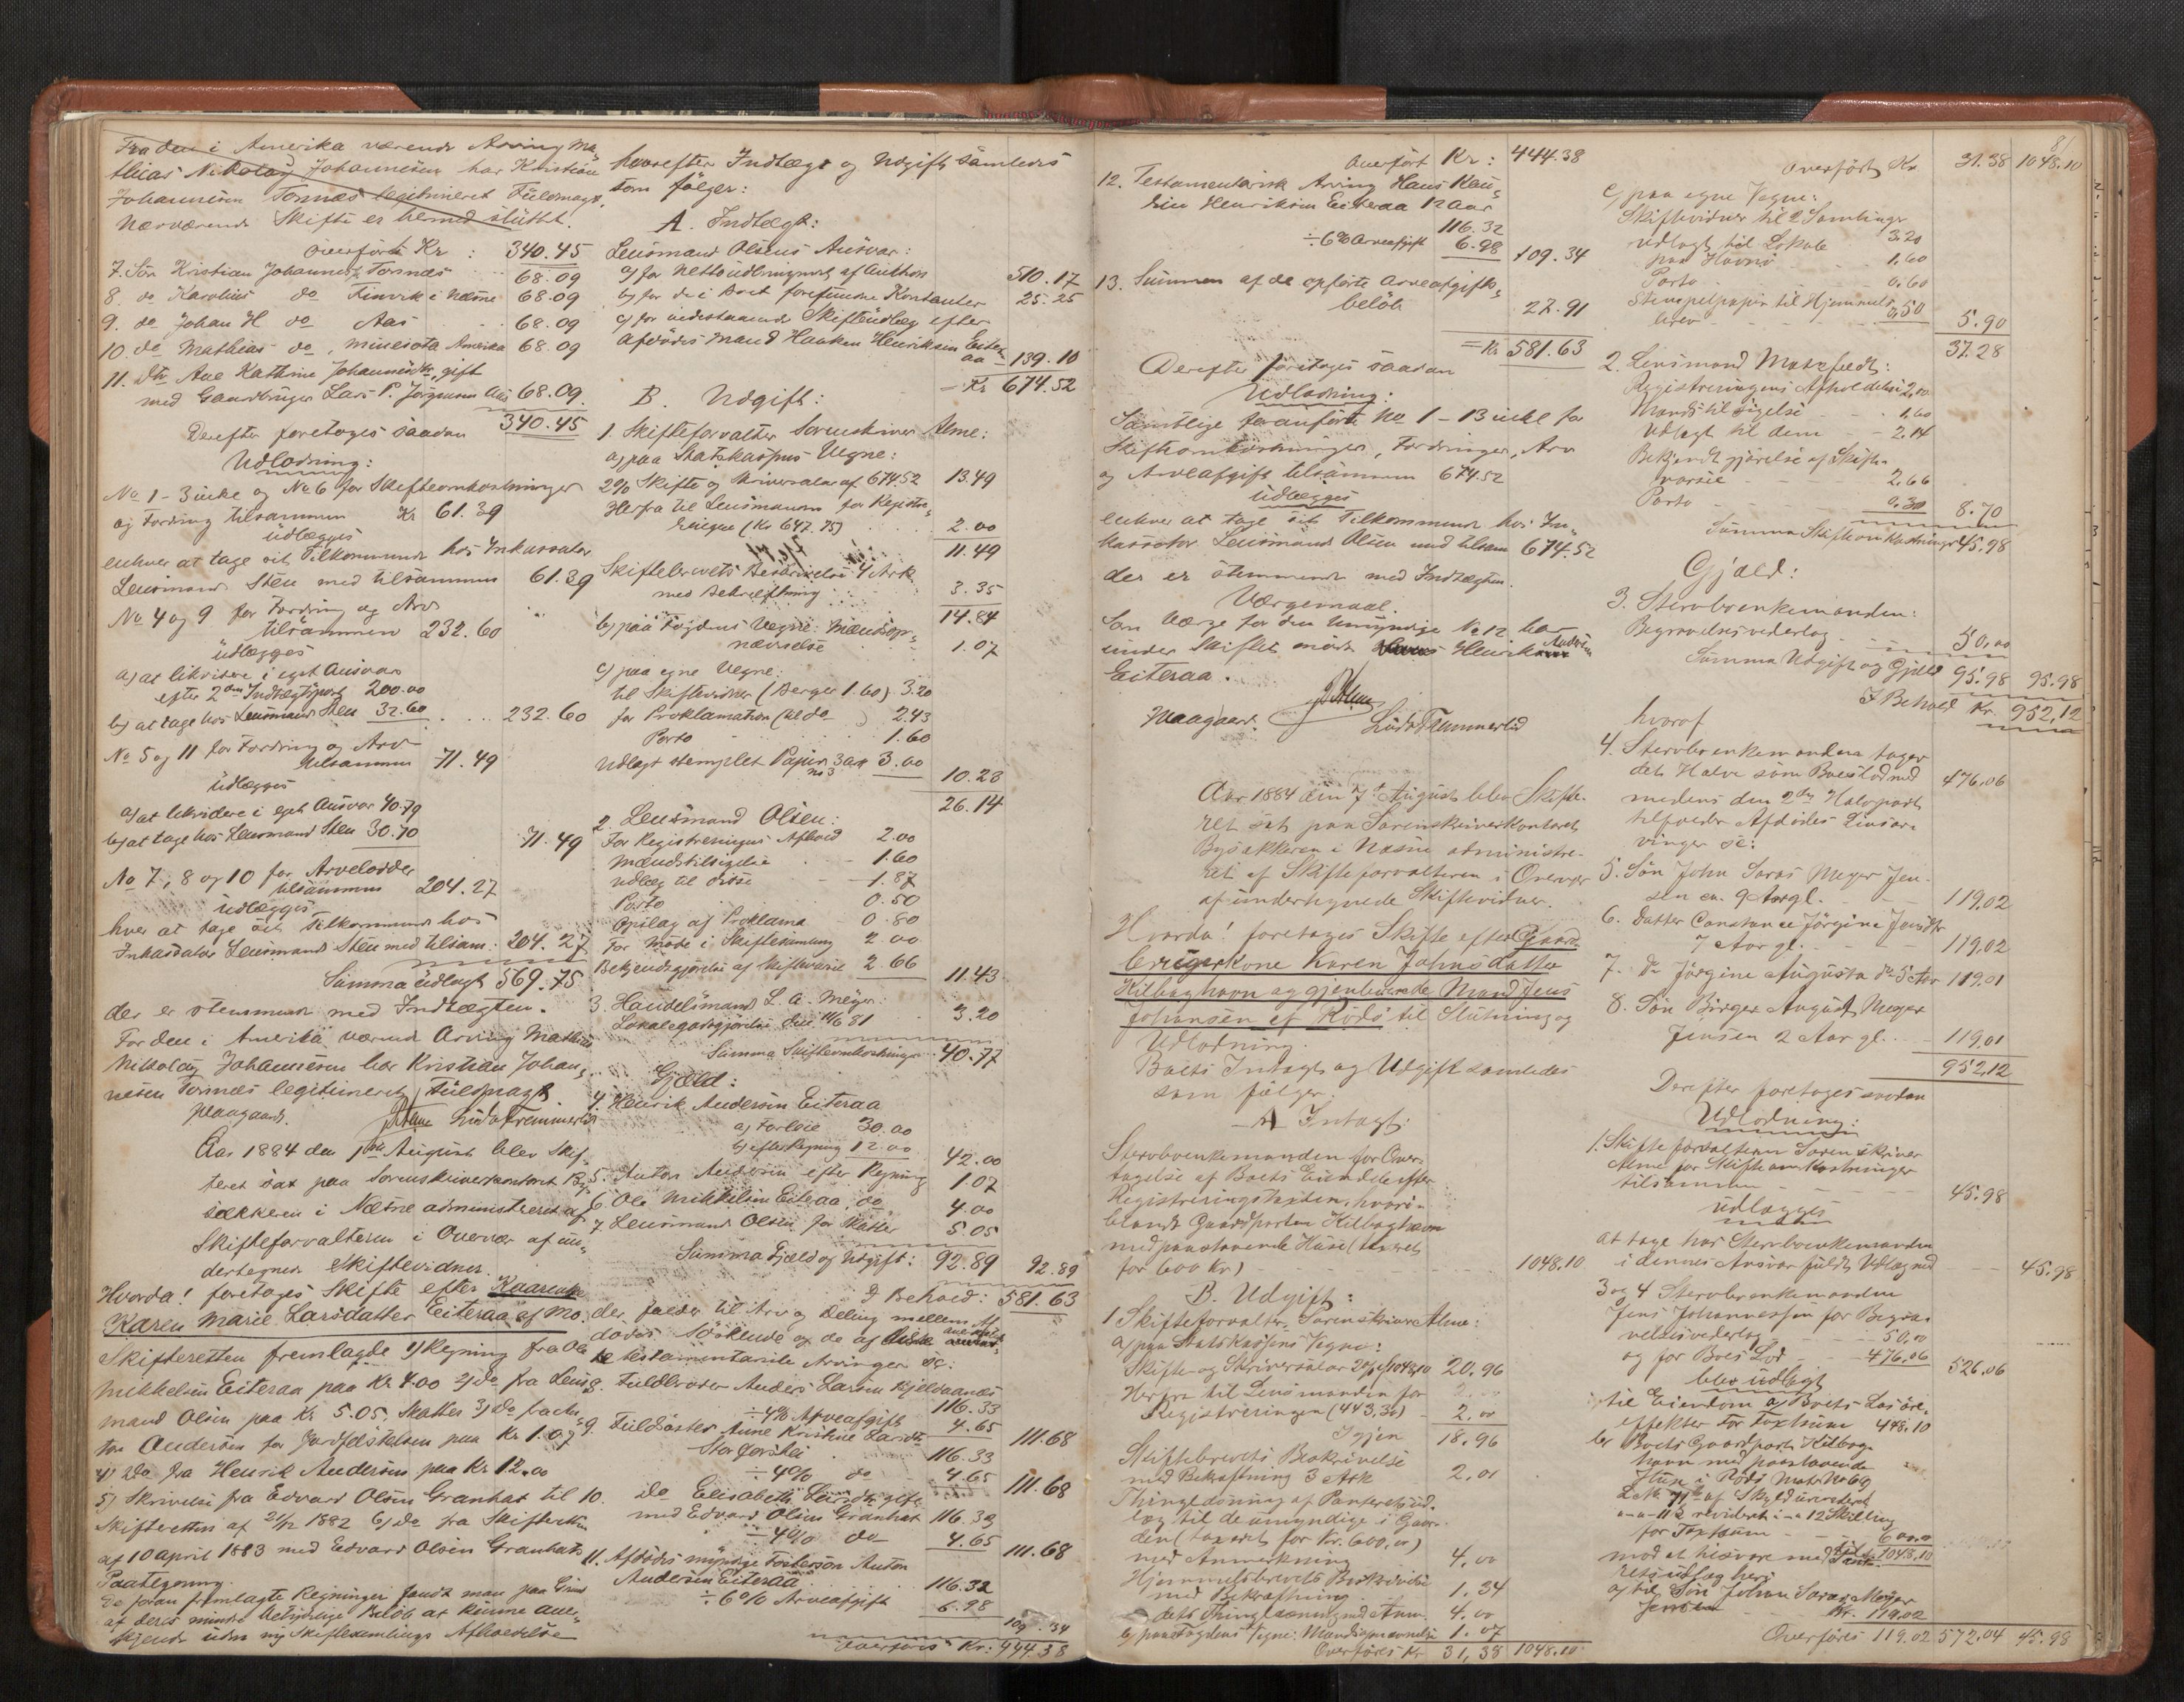 Fra den i Amerika værende Arving Ma-
thias Nikolay Johannesen har Kristian
Johannesen Tornæs legitimeret Fuldmagt.
Nærværende Skifte er hermed sluttet.
Overført Kr : 340.45
7. Søn Kristian Johannes. Tornæs 68.09
8. do Karolius do Finvik i Næsne 68.09
9. do Johan H do Aas 68.09
10. do Mathias do, Minesota Amerika 68.09
11. Dtr Ane Kathrine Johannesdtr, gift
med Gaardbruger Lars P. Jørgensen Aas 68.09
340.45
Derefter foretoges saadan
Udlodning:
No 1-3 incl og No 6 for Skifteomkostninger
og Fordring tilsammen Kr 61.39
udlægges
enhver at tage sit Tilkommende hos Inkassator
Lensmand Steen med tilsammen 61.39
No 4 og 9 for Fordring og Arv
tilsammen 232.60
udlægges
a) at likvidere i eget Ansvar
efter 2den Indtægtspost 200.00
b) at tage hos Lensmand Steen 32.60 232.60
No 5 og 11 for Fordring og Arv
tilsammen 71.49
udlægges
a) at likvidere i eget Ansvar 40.79
b) at tage hos Lensmand Steen 30.70 71.49
No 7, 8 og 10 for Arvelodder
tilsammen 204.27
udlægges
hver at tage sit Tilkommende hos
Inkassator Lensmand Steen med tilsam: 204.27
Summa udlagt 569.75
der er stemmende med Indtægten.
For den i Amerika værende Arving Mathias
Nikolay Johannesen har Kristian Johan-
nesen Tornæs legitimeret Fuldmagt.
Maagaard.
Aar 1884 den 7de August blev Skif-
teret sat paa Sorenskriverkontoret By-
sækkeren i Næsne administreret af
Skifteforvalteren i Overvær af un-
dertegnede Skiftevidner.
Hvorda! foretoges Skifte efter
Karen Marie Larsdatter Eiteraa af Mo.
Skifteretten fremlagde 1) Regning fra Ole
Mikkelsen Eiteraa paa Kr 4.00 2) do fra Lens-
mand Olsen paa Kr 5.05, Skatter 3) do fra An-
ton Andersen for Jordfæstelsen paa Kr 1.07
4) do fra Henrik Andersen paa Kr 12.00
5) Skrivelse fra Edvard Olsen Granhat til
Skifteretten af 21/12 1882 6) do fra Skifteretten
af 10 april 1883 med Edvard Olsen Granhats
Paategning.
De foran fremlagte Regninger fandt man paa Grund
af deres mindre betydelige Beløb at kunne aner-
kjende uden ny Skiftesamlings Afholdelse
hvorefter Indtægt og Udgift samledes
som følger:
A. Indtægt:
Lensmand Olsens Ansvar:
a) for Nettoudbringende af Auktion 510.17
b) for de i Boet forefundne Kontanter 25.25
c) for vedestaaende Skifteudlæg efter
afdødes Mand Haaken Henriksen Eiter-
aa 139.10
Kr 674.52
B. Udgift:
1. Skifteforvalter Sorenskriver Alme:
a) paa Statskassens Vegne:
2% Skifte og Skriversalær af 674.52 13.49
Herfra til Lensmanden for Registre-
ringen (Kr 647.75) 2.00
11.49
Skiftebrevets Beskrivelse 4 Ark
med Bekræftning 3.35
14.84
b) paa Fogdens Vegne: Mændsop-
nævnelse 1.07
c) paa egne Vegne:
til Skiftevidner (Berger 1.60) 3.20
for Proklamation (til do) 2.43
Porto 1.60
Udlagt stemplet Papir 3 ark 3.00
no 3
10.23
26.14
2. Lensmand Olsen:
For Registreringens Afhold 2.00
Mændstilsigelse 1.60
Udlæg til disse 1.87
Porto 0.50
Opslag af Proklama 0.80
For Møde i Skiftesamling 2.00
Bekjendtgjørelse af Skiftevarsel 2.66
11.43
3. Handelsmand L. A. Meyer:
Lokalegodtgjørelse den 14/6 81 3.20
Summa Skifteomkostninger 40.77
Gjæld:
4. Henrik Andersen Eiteraa
a) Forleie 30.00
b) efter Regning 12.00
42.00
5. Anton Andersen efter Regning 1.07
6. Ole Mikkelsen Eiteraa, do 4.00
7. Lensmand Olsen for Skatter 5.05
Summa Gjæld og Udgift: 92.89 92.89
I Behold: 581.63
der falder til Arv og Deling mellem Af-
dødes Søskende og de af
testamentariske Arvinger se:
8. Fuldbroder Anders Larsen Kjeldaanæs
116.33
÷ 4% Arveafgift 4.65 111.68
9. Fuldsøster Anne Kristine Larsdtr
Storforshei 116.33
÷ 4% do 4.65 111.68
10. do Elisabeth Larsdtr gift
med Edvard Olsen Granhat 116.33
÷ 4% do 4.65 111.68
11. Afdødes myndige Fostersøn Anton
Andersen Eiteraa 116.32
÷ 6% Arveafgift 6.98 109.34
Overføres Kr: 444.38
Overført Kr: 444.38
12. Testamentarisk Arving Hans Kau-
rin Henriksen Eiteraa 12 Aar
116.32
÷ 6% Arveafgift 6.98 109.34
13. Summen af de opførte Arveafgifts-
beløb 27.91
= Kr 581.63
Derefter foretoges saadan
Udlodning:
Samtlige foranførte No 1-13 incl for
Skifteomkostninger, Fordringer, Arv
og Arveafgift tilsammen 674.52
udlægges
enhver at tage sit Tilkommende hos In-
kassator Lensmand Olsen med tilsam 674.52
der er stemmende med Indtægten.
Værgemaal.
Som Værge for den umyndige No 12 har
under Skiftet mødt Henrik Andersen
Eiteraa.
Maagaard.
Aar 1884 den 7de August blev Skifte-
ret sat paa Sorenskriverkontoret
Bysækkeren i Næsne administre-
ret af Skifteforvalteren i Overvær
af undertegnede Skiftevidner.
Hvorda! foretoges Skifte efter Gaard-
brugerkone Karen Johnsdatter
Kilboghavn og gjenlevende Mand Jens
Johansen af Rødø til Slutning og
Udlodning.
Boets Indtægt og Udgift samledes
som følger:
A Intægt:
Stervboenkemanden for Over-
tagelse af Boets Eiendele efter
Registreringslisten, hvori-
blandt Gaardparten Kilboghavn
med paastaaende Huse (taxeret
for 600 Kr) 1048.10
B. Udgift:
1 Skifteforvalter, Sorenskriver Alme:
a) paa Statskassens Vegne:
Skifte og Skriversalær 2% af 1048.10 20.96
Herfra til Lensmanden for
Registreringen (443.30) 2.00
Igjen 18.96
Skiftebrevets Beskrivelse
med Bekræftning 3 Ark 2.01
Thinglæsning af Panteretsud-
læg til de umyndige i Gaar-
den (taxeret for Kr. 600,00)
med Anmerkning 4.00
Hjemmelsbrevets Beskrivelse
med Bekræftning 1.34
dets Thinglæsning med Anm. 4.00
b) paa Fogdens Vegne: Mandsopnævnelse 1.07
Overføres Kr 31,38 1048.10
81
Overført Kr 31.38 1048.10
c) paa egne Vegne:
Skiftevidner til 2 Samlinger 3.20
Udlagt til Lokale
paa Havnø 1.60
Porto 0.60
Stempelpapir til Hjemmels-
brev 0,50 5.90
37.28
2. Lensmand Marfeldt:
Registreringens Afholdelse 2.00
Mændstilsigelse 1.60
Udlagt til dem 2.14
Bekjendtgjørelse af Skifte-
varsel 2.66
Porto 0.30 8.70
Summa Skifteomkostninger 45.98
Gjæld:
3. Stervboenkemanden:
Begravelsesvederlag 50,00
Summa Udgift og Gjæld 95.98 95.98
I Behold Kr. 952,12
hvoraf
4. Stervboenkemanden tager
det Halve som Boeslod med 476.06
medens den 2den Halvpart
tilfalder Afdødes Livsar-
vinger se:
5. Søn John Saras Meyer Jen-
sen ca. 9 Aar gl. 119.02
6. Datter Constance Jørgine Jensdtr
7 Aar gl. 119,02
7. do Jørgine Augusta do 5 Aar 119,01
8. Søn Birger August Meyer
Jensen 2 Aar gl. 119.01
952,12
Derefter foretoges saadan
Udlodning:
1. Skifteforvalteren Sorenskriver
Alme for Skifteomkostninger
tilsammen 45.98
udlægges
at tage hos Stervboenkemanden
i dennes Ansvar fuldt Udlæg med 45.98
3 og 4 Stervboenkemanden
Jens Johannessen for Begra-
velsesvederlag 50,00
og for Boes Lod 476.06 526.06
blev udlagt
til Eiendom a) Boets Løsøre-
effekter for Taxtsum 448.10
b) Boets Gaardpart Kilbog-
havn med paastaaende
Huse i Rødø Matr No 69
revideret 12 Skilling
for Taxtsum 600.00
1048.10
mod at hisvare med
retsudlæg heri
a) til Søn Johan Saras Meyer
Jensen Kr. 119.02
Overføres 119.02 572,04 45.98